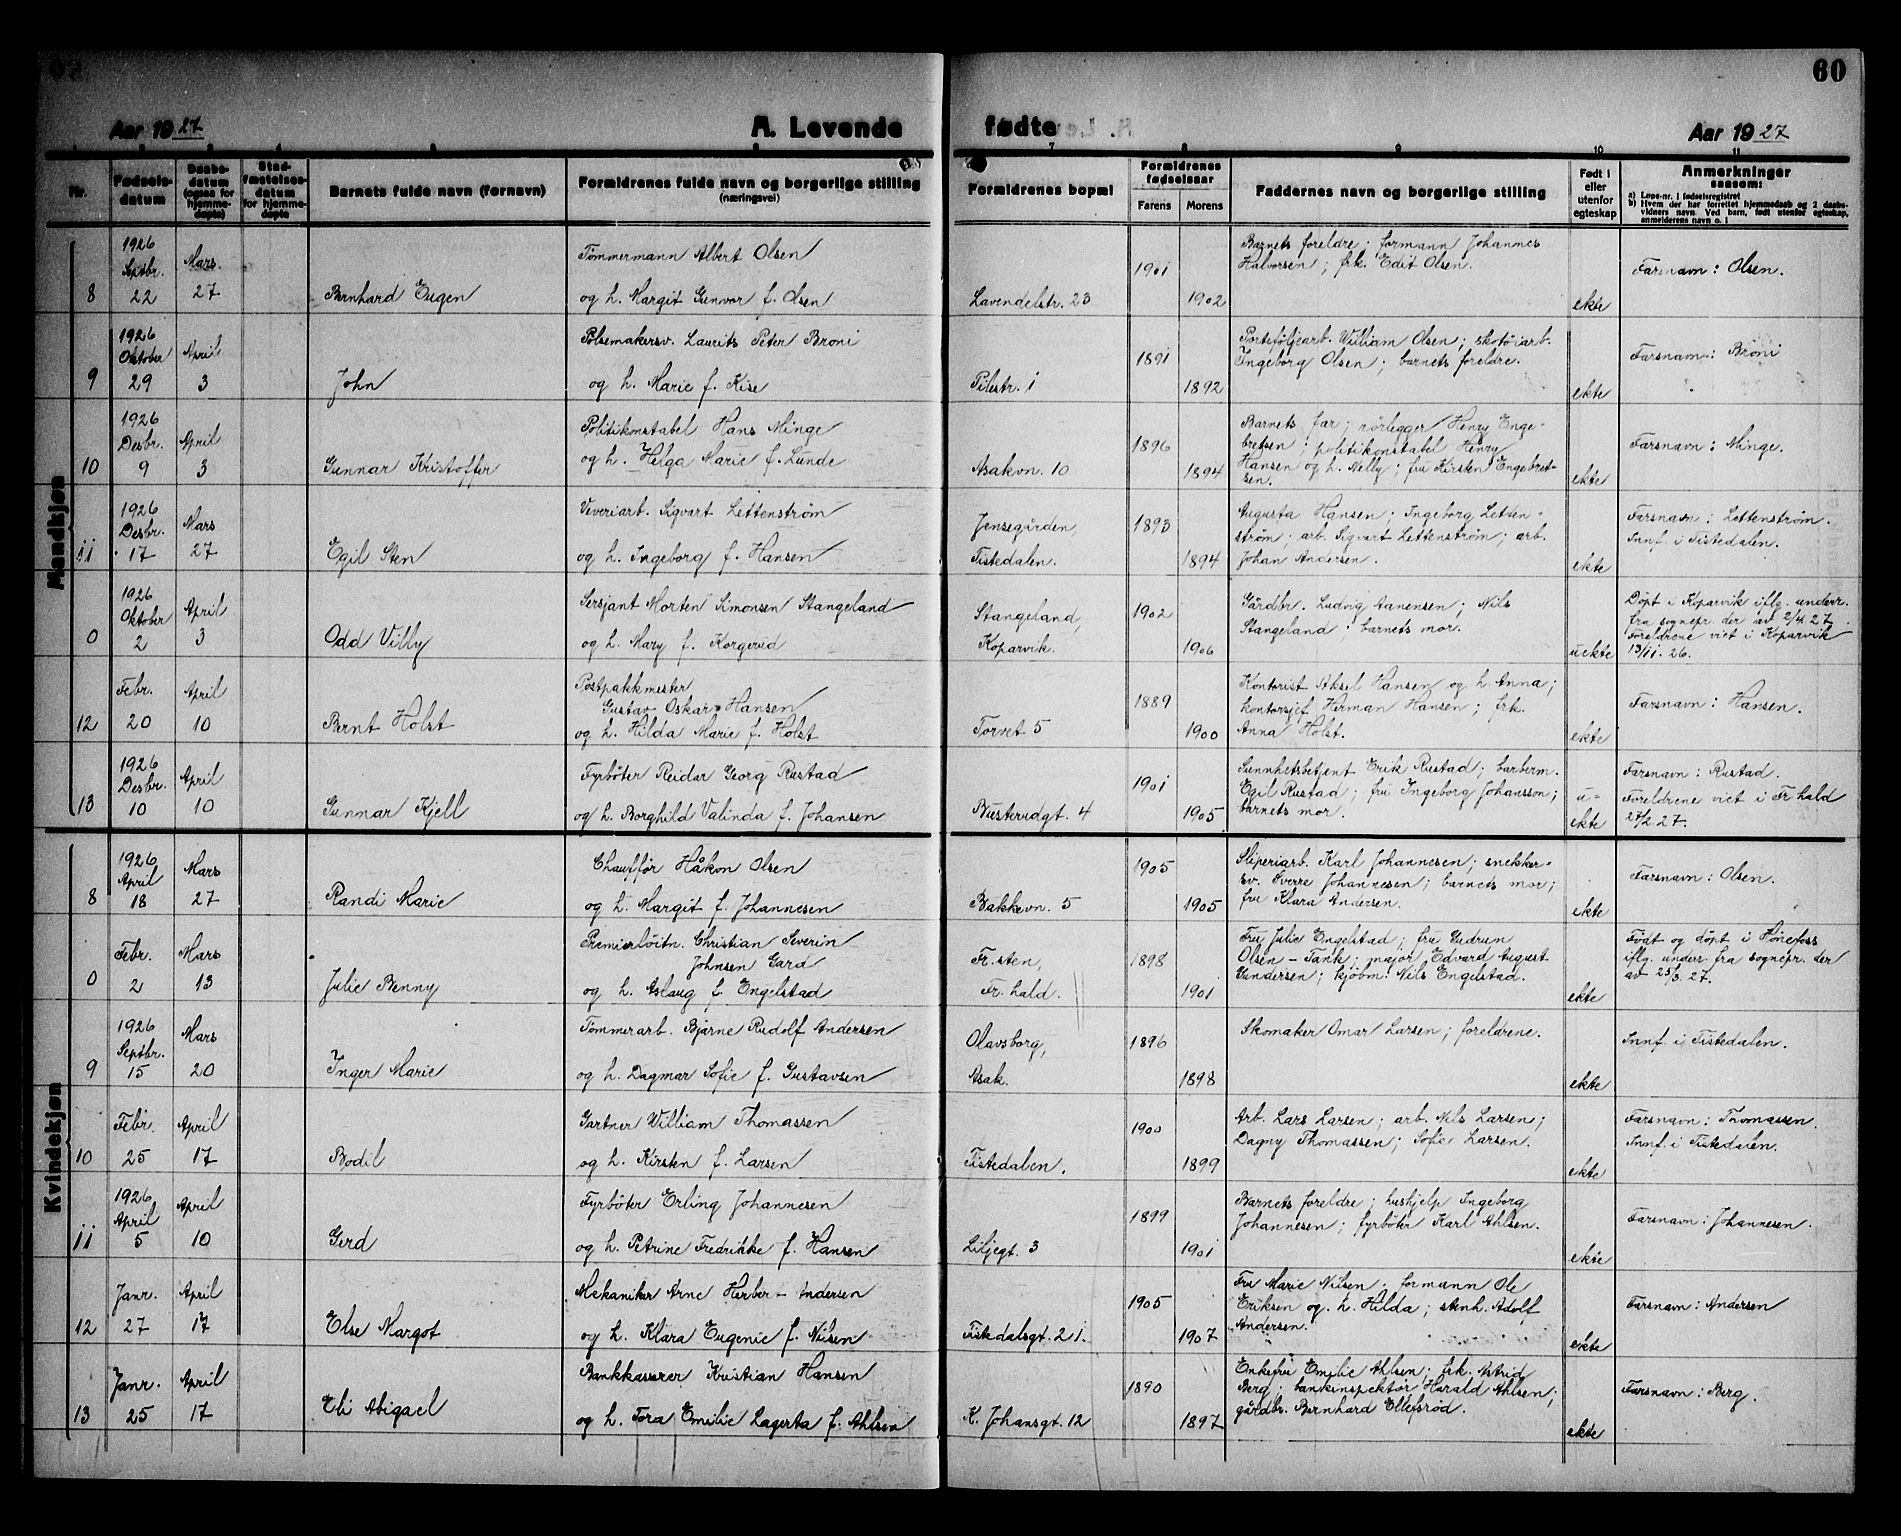 60
Aar 1927
A. Levende
fødte
Aar 1927
Nr.
Fødsels-
datum
Daabs-
datum
(ogsaa for
hjemme-
døpte)
Stad-
fæstelses-
datum
for hjemme-
døpte
Barnets fulde navn (fornavn)
Forældrenes fulde navn og borgerlige stilling
(næringsvei)
7
Forældrenes bopæl
8
Forældrenes
fødselsaar
Farens
Morens
9
Faddernes navn og borgerlige stilling
10
Født i
eller
utenfor
egteskap
11
Anmerkninger
saasom:
a) Løpe-nr. i fødselsregistret
b) Hvem der har forrettet hjemmedaab og 2 daabs-
vidners navn. Ved barn, født utenfor egteskap,
anmelderens navn o. l
Mandkjøn
8
1926
Septbr.
22
Mars
27
Bernhard Eugen
Tømmermann Albert Olsen
og h. Margit Gunvor f. Olsen
Lavendelstr. 23
1901
1902
Barnets foreldre; formann Johannes
Halvorsen; frk. Edit Olsen.
ekte
Farsnavn: Olsen.
9
1926
Oktober
29
April
3
John
Pølsemakersv. Laurits Peter Brøni
og h. Marie f. Kise
Pilestr. 1
1891
1892
Porteføljearb. William Olsen; skotøiarb.
Ingeborg Olsen; barnets foreldre.
ekte
Farsnavn: Brøni
10
1926
Desbr.
9
April
3
Gunnar Kristoffer
Politikonstabel Hans Minge
og h. Helga Marie f. Lunde
Asakvn. 10
1896
1894
Barnets far; rørlegger Henry Enge-
bretsen; politikonstabel Henry
Hansen og h. Nelly; fru Kirsten Engebret-
sen.
ekte
Farsnavn: Minge.
11
1926
Desbr.
17
Mars
27
Egil Sten
Veveriarb. Sigvart Lettenstrøm
og h. Ingeborg f. Hansen
Jensegården,
Tistedalen.
1893
1894
Augusta Hansen; Ingeborg Letten-
strøm; arb. Sigvart Lettenstrøm; arb.
Johan Andersen.
ekte
Farsnavn: Lettenstrøm.
Innf. i Tistedalen.
0
1926
Oktober
2
April
3
Odd Villy
Sersjant Morten Simonsen Stangeland
og h. Mary f. Korgerud
Stangeland,
Koparvik.
1902
1906
Gårdbr. Ludvig Aanensen; Nils
Stangeland; barnets mor.
uekte
Døpt i Koparvik iflg. underr.
fra sognepr. der av 2/4 27.
Foreldrene viet i Koparvik
13/11. 26.
12
Febr.
20
April
10
Bernt Holst
Postpakkmester
Gustav Oskar Hansen
og h. Hilda Marie f. Holst
Torvet 5
1889
1900
Kontorist Aksel Hansen og h. Anna;
kontorsjef Herman Hansen; frk.
Anna Holst.
ekte
Farsnavn: Hansen.
13
1926
Desbr.
10
April
10
Gunnar Kjell
Fyrbøter Reidar Georg Rustad
og h. Borghild Valinda f. Johansen
Busterudgt. 4
1901
1905
Sunnhetsbetjent Erik Rustad; barberm.
Egil Rustad; fru Ingeborg Johansson;
barnets mor.
u-
ekte
Farsnavn: Rustad.
Foreldrene viet i Fr.hald
27/2 27.
Kvindekjøn
8
1926
April
18
Mars
27
Randi Marie
Chauffør Håkon Olsen
og h. Margit f. Johannesen
Bakkevn. 5
1905
1905
Sliperiarb. Karl Johannesen; snekker-
sv. Sverre Johannesen; barnets mor;
fru Klara Andersen.
ekte
Farsnavn: Olsen.
0
Febr.
2
Mars
13
Julie Benny
Premierløitn. Christian Severin
Johnsen Gard
og h. Aslaug f. Engelstad
Fr. sten,
Fr. hald.
1898
1901
Fru Julie Engelstad; fru Gudrun
Olsen - Tank; major Edvard August
Gundersen; kjøbm. Nils Engelstad.
ekte
Født og døpt i Hønefoss
iflg. underr. fra sognepr. der
av 25/3. 27.
9
1926
Septbr.
15
Mars
20
Inger Marie
Tømmerarb. Bjarne Rudolf Andersen
og h. Dagmar Sofie f. Gustavsen
Olavsborg,
Asak.
1896
1898
Skomaker Omar Larsen; foreldrene.
ekte
Innf. i Tistedalen.
10
Febr.
25
April
17
Bodil
Gartner William Thomassen
og h. Kirsten f. Larsen
Tistedalen.
1900
1899
Arb. Lars Larsen; arb. Nils Larsen;
Dagny Thomassen; Sofie Larsen.
ekte
Farsnavn: Thomassen.
Innf. i Tistedalen.
11
1926
April
5
April
10
Gerd
Fyrbøter Erling Johannesen
og h. Petrine Fredrikke f. Hansen
Liljegt. 3
1899
1901
Barnets foreldre; hushjelp Ingeborg
Johannesen; fyrbøter Karl Ahlsen.
ekte
Farsnavn: Johannesen.
12
Janr.
27
April
17
Else Margot
Mekaniker Arne Herber - Andersen
og h. Klara Eugenie f. Nilsen
Tistedalsgt. 21.
1905
1907
Fru Marie Nilsen; formann Ole
Eriksen og h. Hilda; stenh. Adolf
Andersen.
ekte
Farsnavn: Andersen
13
Janr.
25
April
17
Eli Abigael
Bankkasserer Kristian Hansen
og h. Tora Emilie Lagerta f. Ahlsen
K. Johansgt. 12
1890
1897
Enkefru Emilie Ahlsen; frk. Astrid
Berg; bankinspektør Harald Ahlsen;
gårdbr. Bernhard Ellefsrød.
ekte
Farsnavn: Berg.